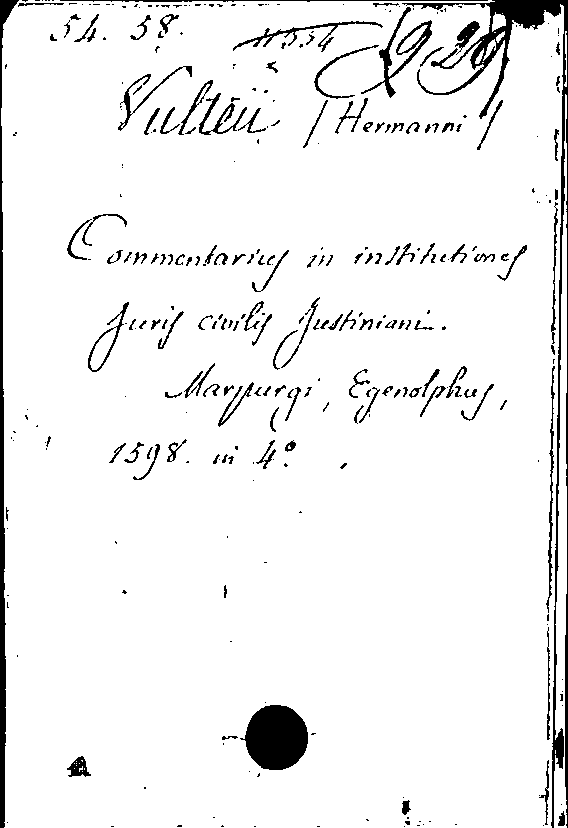 54. 58.
Vulteii / Hermanni /
Commentarius in institutiones
Juris civilis Justiniani.
Marpurgi, Egenolphus,
1598. in 4º.